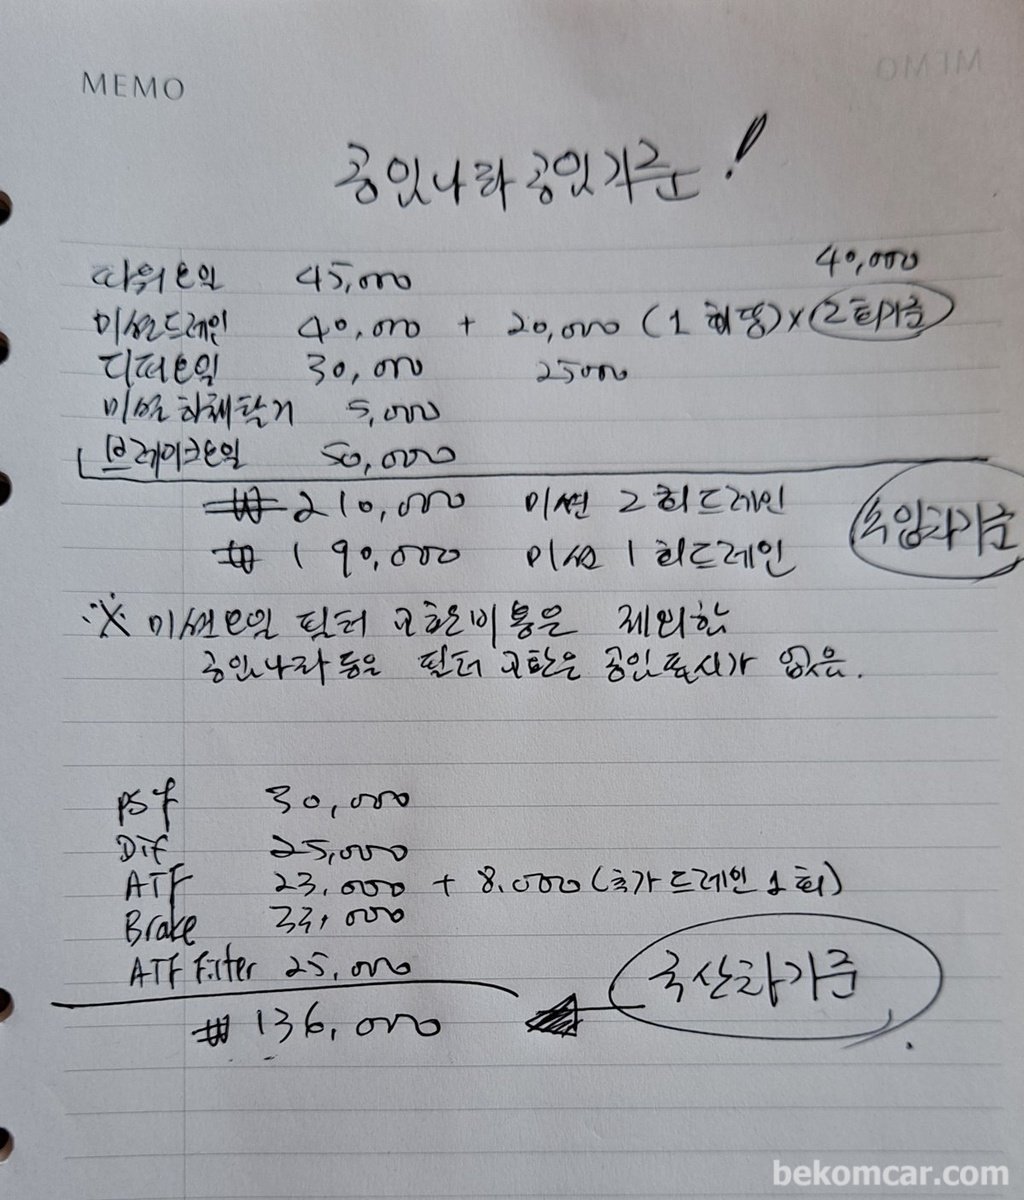 MEMO
공임나라 공임기준!
40,000
파워오일 45,000
미션드레인 40,000 + 20,000 (1회당) × 2회기준
디퍼오일 30,000 25000
미션 하체탈거 5,000
브레이크오일 50,000
₩ 210,000 미션 2회드레인
₩ 190,000 미션 1회드레인
수입차기준
※ 미션오일 필터 교환비용은 제외함
공임나라등은 필터 교환은 공임표시가 없음.
PSF 30,000
Dif 25,000
ATF 23,000 + 8,000 (추가드레인 1회)
Brake 33,000
ATF Filter 25,000
국산차기준
₩ 136,000
bekomcar.com